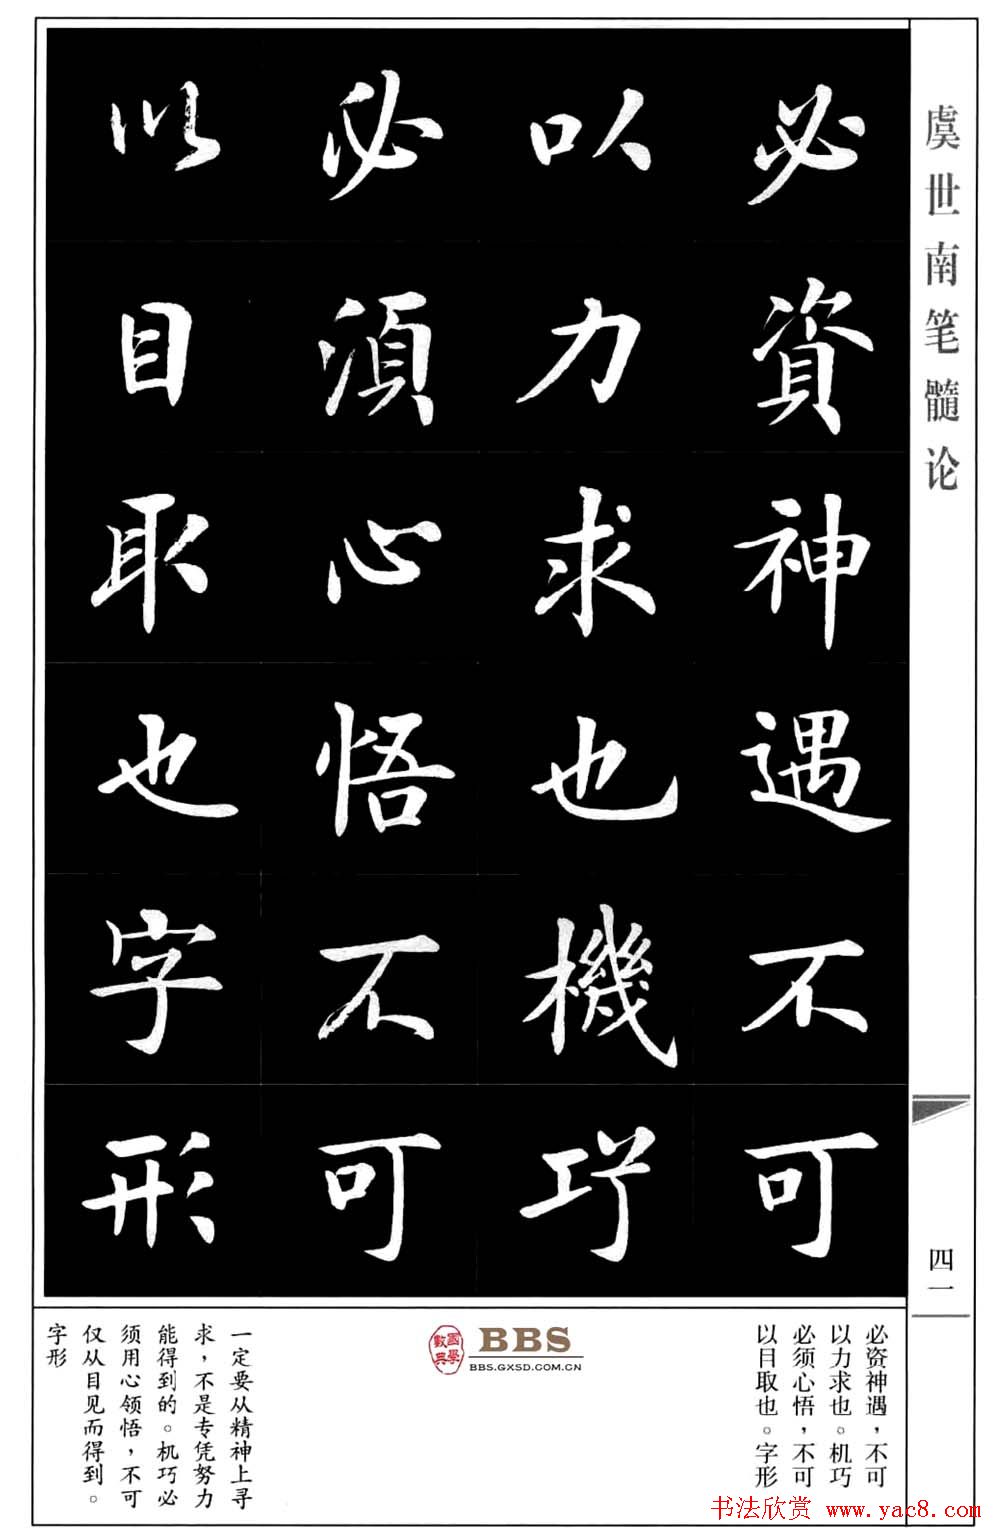 虞世南笔髓论
必資神遇不可
以力求也機巧
必須心悟不可
以目取也字形
四一
必资神遇，不可
以力求也。机巧
必须心悟，不可
以目取也。字形
國學
數典
BBS
BBS.GXSD.COM.CN
一定要从精神上寻
求，不是专凭努力
能得到的。机巧必
须用心领悟，不可
仅从目见而得到。
字形
书法欣赏 www.yac8.com